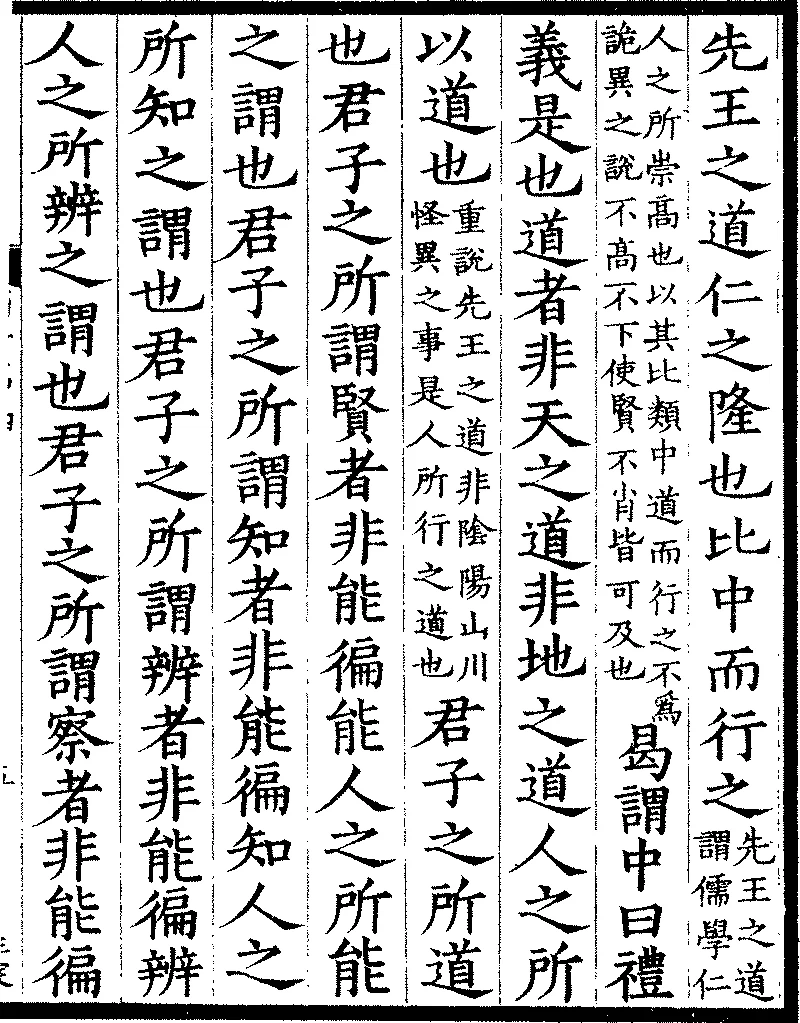 先王之道仁之隆也比中而行之先王之道謂儒學仁
人之所崇髙也以其比類中道而行之不爲詭異之說不髙不下使賢不肖皆可及也曷謂中曰禮
義是也道者非天之道非地之道人之所
以道也重說先王之道非陰陽山川怪異之事是人所行之道也君子之所道
也君子之所謂賢者非能徧能人之所能
之謂也君子之所謂知者非能徧知人之
所知之謂也君子之所謂辨者非能徧辨
人之所辨之謂也君子之所謂察者非能徧